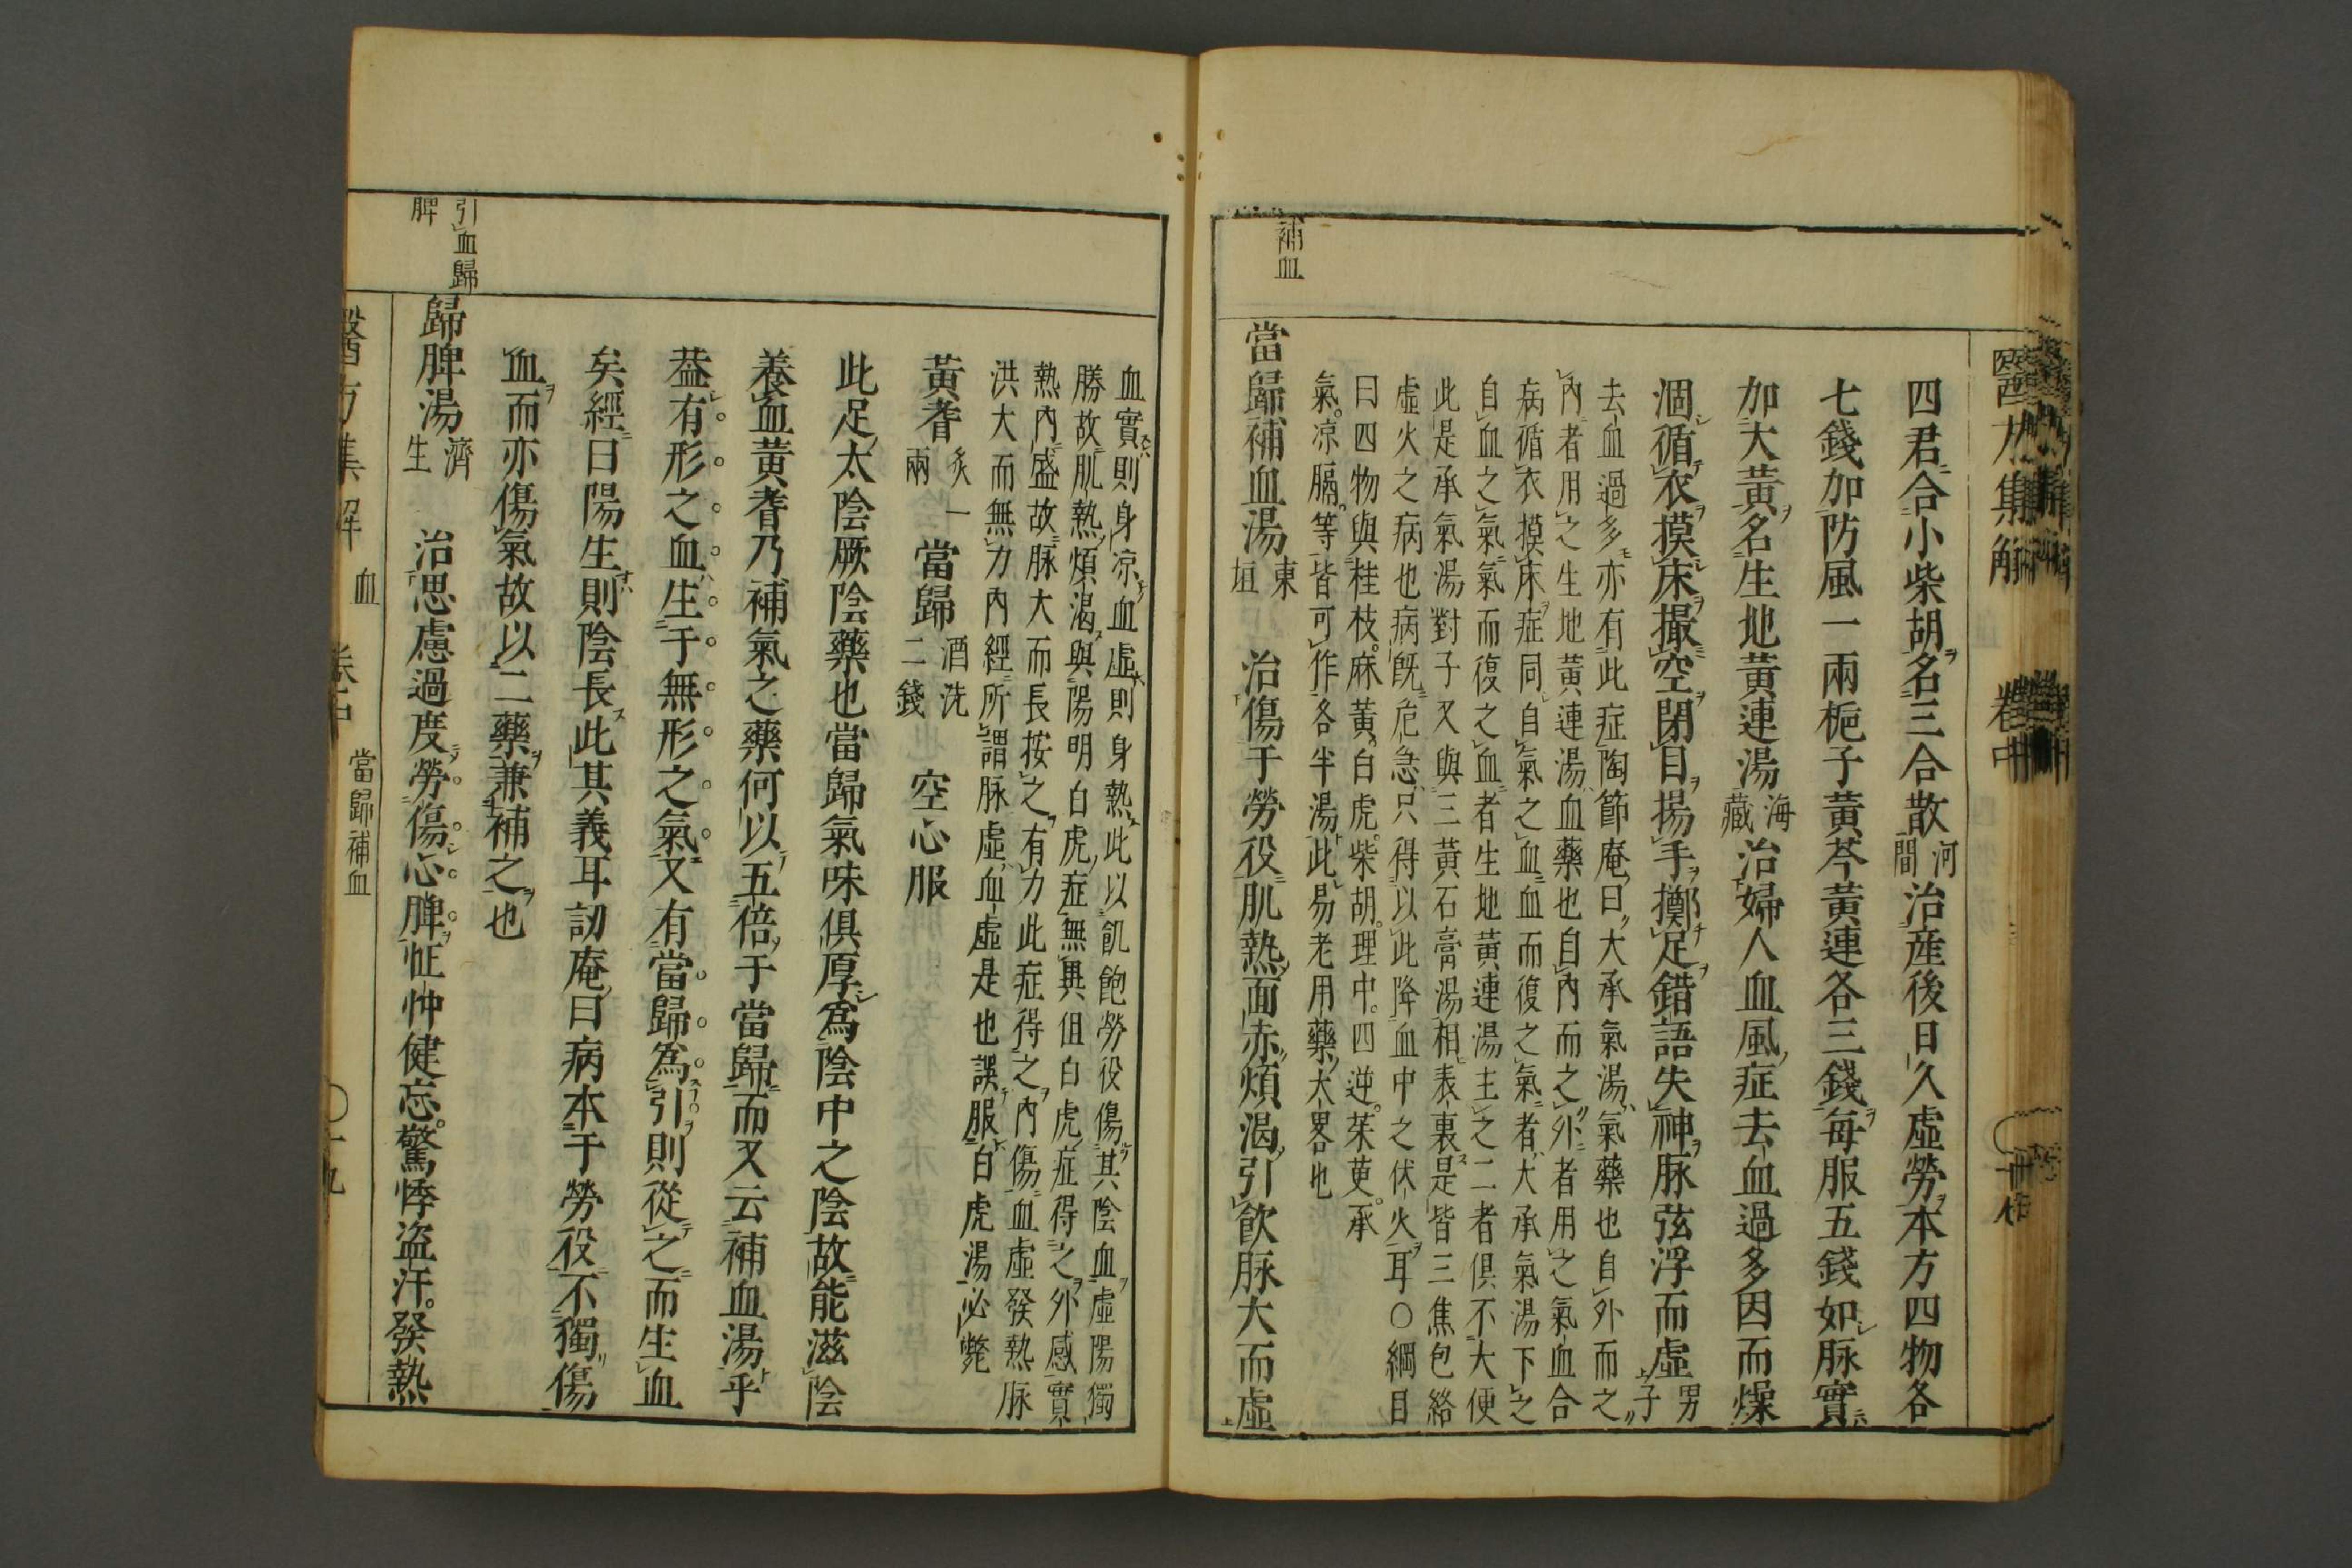 醫方集解
卷中
四君合小柴胡名三合散河間治產後日久虛勞本方四物各
七錢加防風一兩梔子黃芩黃連各三錢每服五錢如脉實
加大黃名生地黃連湯海藏治婦人血風症去血過多因而燥
涸循衣摸床撮空閉目揚手擲足錯語失神脉弦浮而虛男子
去血過多亦有此症陶節庵曰大承氣湯氣藥也自外而之
內者用之生地黃連湯血藥也自內而之外者用之氣血合
病循衣摸床症同自氣之血血而復之氣者大承氣湯下之
自血之氣氣而復之血者生地黃連湯主之二者俱不大便
此是承氣湯對子又與三黃石膏湯相表裏是皆三焦包絡
虛火之病也病既危急只得以此降血中之伏火耳○綱目
曰四物與桂枝。麻黃。白虎。柴胡。理中。四逆。茱萸。承
氣。凉膈。等皆可作各半湯此易老用藥大畧也
補血
當歸補血湯東垣 治傷于勞役肌熱面赤煩渴引飲脉大而虛
血實則身凉血虛則身熱此以飢飽勞役傷其陰血虛陽獨
勝故肌熱煩渴與陽明白虎症無異但白虎症得之外感實
熱內盛故脉大而長按之有力此症得之內傷血虛發熱脉
洪大而無力內經所謂脉虛血虛是也誤服白虎湯必斃
黃耆炙一兩 當歸酒洗二錢 空心服
此足太陰厥陰藥也當歸氣味俱厚為陰中之陰故能滋陰
養血黃耆乃補氣之藥何以五倍于當歸而又云補血湯乎
葢有形之血生于無形之氣又有當歸為引則從之而生血
矣經曰陽生則陰長此其義耳訒庵曰病本于勞役不獨傷
血而亦傷氣故以二藥兼補之也
引血歸
脾
歸脾湯濟生 治思慮過度勞傷心脾怔忡健忘。驚悸盜汗。發熱
醫方集解 血 卷中 當歸補血 ○十九